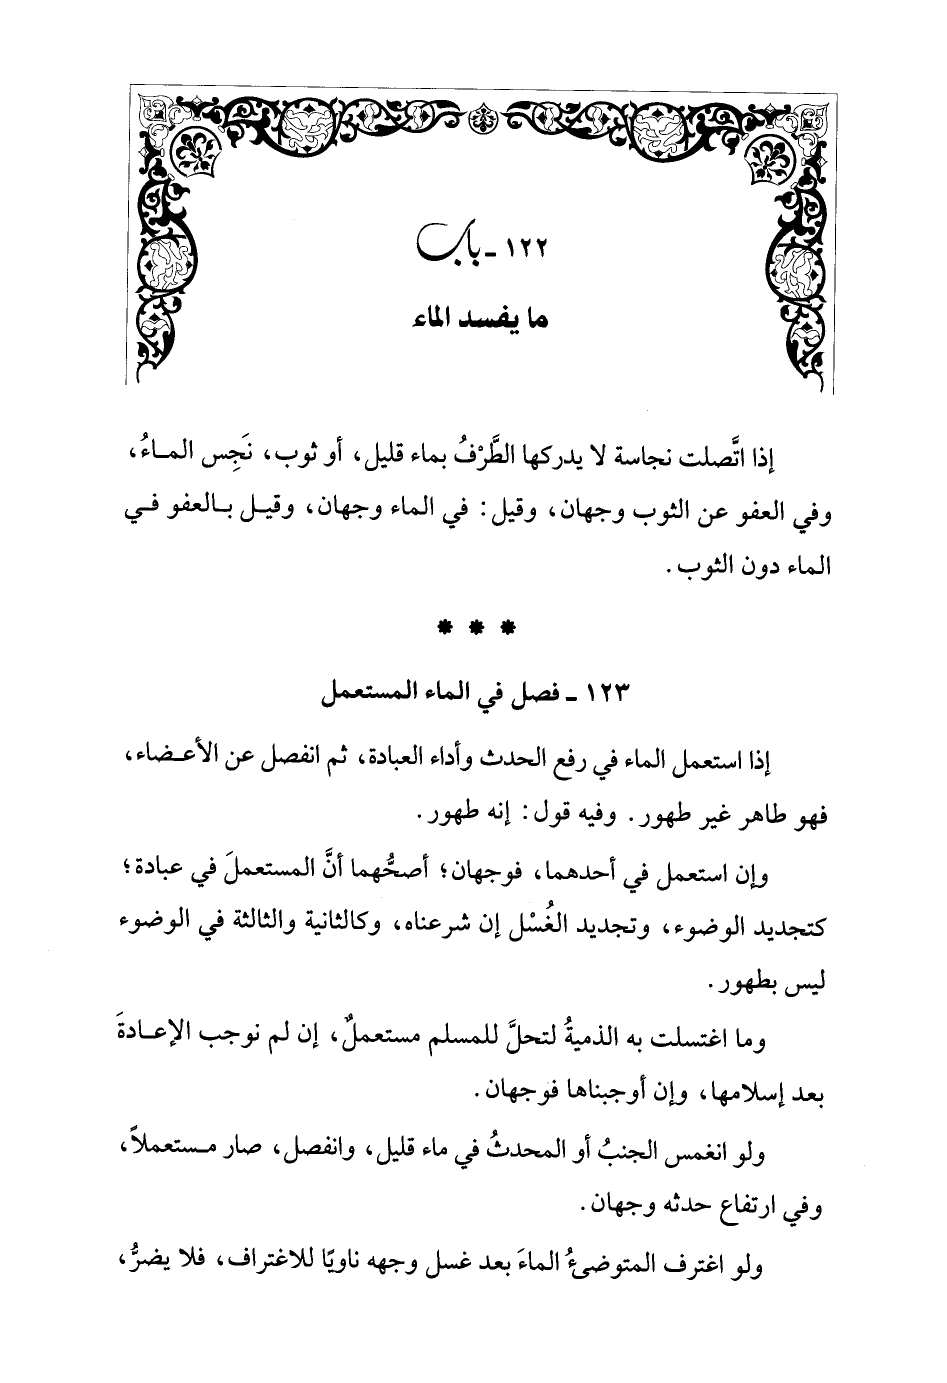 ١٢٢ - باب
ما يفسد الماء
إذا اتَّصلت نجاسة لا يدركها الطَّرْفُ بماء قليل، أو ثوب، نَجِس الماءُ،
وفي العفو عن الثوب وجهان، وقيل: في الماء وجهان، وقيل بالعفو في
الماء دون الثوب.
* * *
١٢٣ - فصل في الماء المستعمل
إذا استعمل الماء في رفع الحدث وأداء العبادة، ثم انفصل عن الأعضاء،
فهو طاهر غير طهور. وفيه قول: إنه طهور.
وإن استعمل في أحدهما، فوجهان؛ أصحُّهما أنَّ المستعملَ في عبادة؛
كتجديد الوضوء، وتجديد الغُسْل إن شرعناه، وكالثانية والثالثة في الوضوء
ليس بطهور.
وما اغتسلت به الذميةُ لتحلَّ للمسلم مستعملٌ، إن لم نوجب الإعادةَ
بعد إسلامها، وإن أوجبناها فوجهان.
ولو انغمس الجنبُ أو المحدثُ في ماء قليل، وانفصل، صار مستعملاً،
وفي ارتفاع حدثه وجهان.
ولو اغترف المتوضئُ الماءَ بعد غسل وجهه ناويًا للاغتراف، فلا يضرُّ،